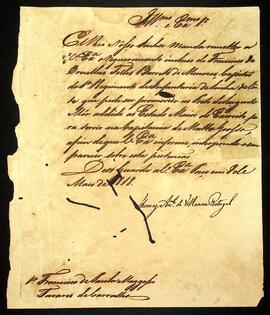 Illmo. Exmo. Sr.
El Rei Nosso Senhor Manda remetter a
V. Exa. o Requerimento incluso de Francisco de
Ornellas Telles Barreto de Menezes Capitão
do 1º Regimento de
que pede ser promovido ao Posto de Sargento
Mór addido ao Estado Maior do Exercito pa
ra servir na Capitania de Matto Grosso
afim de que V. Exa. informe interpondo o seu
parecer sobre esta pertenção.
Deos Guarde a V. Exa. Paço em de
Maio de 1818.
Thomaz Anto. de Villanova Portugal
Sr. Francisco de Paula Maggessi
Tavares de Carvalho